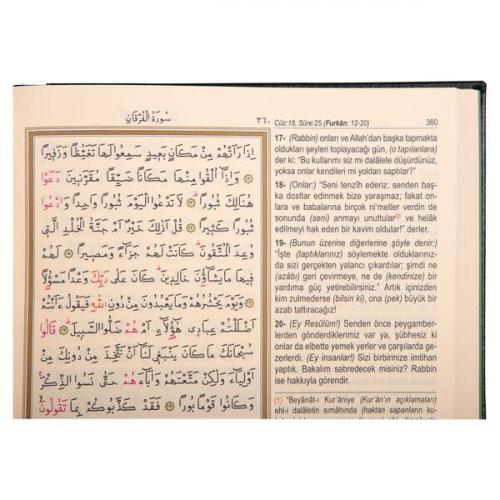 سُورَةُ الْفُرْقَانِ
٣٦٠
اِذَا رَاَتْهُمْ مِنْ مَكَانٍ بَعِيدٍ سَمِعُوا لَهَا تَغَيُّظًا وَزَفِيرًا
وَاِذَٓا اُلْقُوا مِنْهَا مَكَانًا ضَيِّقًا مُقَرَّنِينَ دَعَوْا
هُنَالِكَ ثُبُورًا لَا تَدْعُوا الْيَوْمَ ثُبُورًا وَاحِدًا وَادْعُوا
ثُبُورًا كَثِيرًا قُلْ اَذٰلِكَ خَيْرٌ اَمْ جَنَّةُ الْخُلْدِ الَّتِي
وُعِدَ الْمُتَّقُونَ كَانَتْ لَهُمْ جَزَٓاءً وَمَصِيرًا لَهُمْ
فِيهَا مَا يَشَٓاؤُنَ خَالِدِينَ كَانَ عَلٰى رَبِّكَ وَعْدًا مَسْؤُلًا
وَيَوْمَ يَحْشُرُهُمْ وَمَا يَعْبُدُونَ مِنْ دُونِ اللّٰهِ فَيَقُولُ ءَاَنْتُمْ
اَضْلَلْتُمْ عِبَادِي هٰٓؤُلَٓاءِ اَمْ هُمْ ضَلُّوا السَّبِيلَ قَالُوا
سُبْحَانَكَ مَا كَانَ يَنْبَغِي لَنَٓا اَنْ نَتَّخِذَ مِنْ دُونِكَ مِنْ
اَوْلِيَٓاءَ وَلٰكِنْ مَتَّعْتَهُمْ وَاٰبَٓاءَهُمْ حَتّٰى نَسُوا الذِّكْرَ
وَكَانُوا قَوْمًا بُورًا فَقَدْ كَذَّبُوكُمْ بِمَا تَقُولُونَ
Cüz:18, Sûre:25 (Furkân: 12-20) 360
17- (Rabbin) onları ve Allah'dan başka tapmakta
oldukları şeyleri toplayacağı gün, (o tapılanlara)
der ki: "Bu kullarımı siz mi dalâlete düşürdünüz,
yoksa onlar kendileri mi yoldan saptılar?"
18- (Onlar:) "Seni tenzîh ederiz; senden baş-
ka dostlar edinmek bize yaraşmaz; fakat on-
lara ve babalarına birçok ni'metler verdin de
sonunda (seni) anmayı unuttular(1) ve helâk
edilmeyi hak eden bir kavim oldular!" derler.
19- (Bunun üzerine diğerlerine şöyle denir:)
"İşte (taptıklarınız) söylemekte olduklarınız-
da sizi gerçekten yalancı çıkardılar; şimdi ne
(azâbı) geri çevirmeye, ne de (kendinize) bir
yardıma güç yetirebilirsiniz." Artık içinizden
kim zulmederse (bilsin ki), ona (pek) büyük bir
azab tattıracağız!
20- (Ey Resûlüm!) Senden önce peygamber-
lerden gönderdiklerimiz var ya, şübhesiz ki
onlar da elbette yemek yerler ve çarşılarda ge-
zerlerdi. (Ey insanlar!) Sizi birbirinize imtihan
yaptık. Bakalım sabredecek misiniz? Rabbin
ise hakkıyla görendir.
(1) "Beyânât-ı Kur'âniye (Kur'ân'ın açıklamaları)
ehl-i dalâletin sımâhında (haktan sapanların ku-